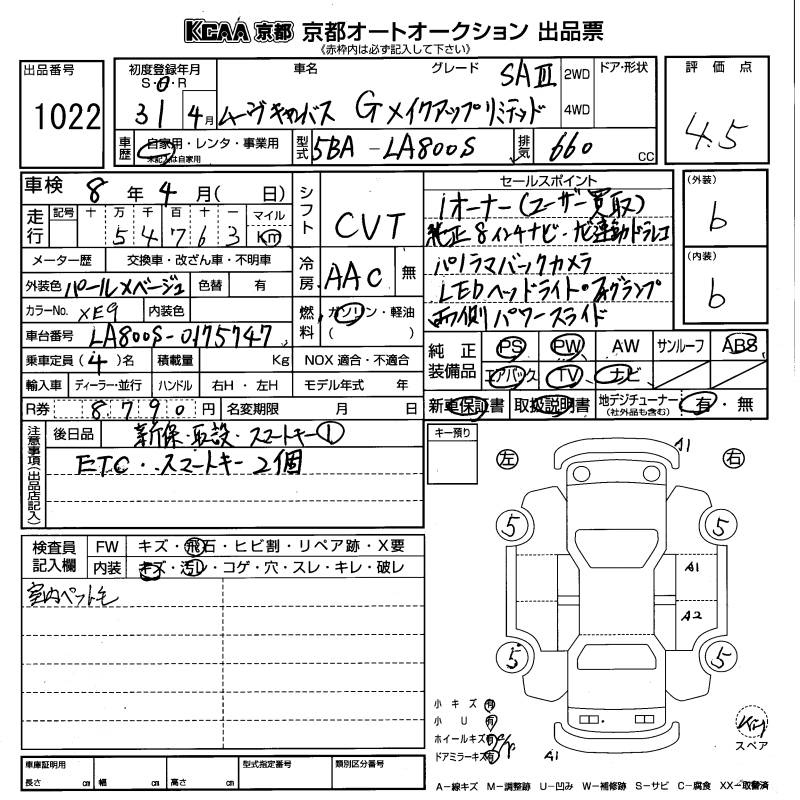 KCAA 京都 京都オートオークション 出品票
《赤枠内は必ず記入して下さい》
出品番号 1022
初度登録年月 S・H・R 31 4月
車名 ムーヴキャンバス
グレード Gメイクアップリミテッド SAⅢ
2WD 4WD
ドア・形状
評価点 4.5
車歴 自家用・レンタ・事業用
未記入は自家用
型式 5BA-LA800S
排気 660 CC
車検 8年4月(日)
走行 記号 十 万 千 百 十 一 マイル
54763 Km
シフト CVT
メーター歴 交換車・改ざん車・不明車
外装色 パールメベージュ 色替 有
冷房 AAC 無
カラーNo. XE9 内装色
燃料 ガソリン・軽油 ( )
車台番号 LA800S-0175747
乗車定員(4)名 積載量 Kg NOX 適合・不適合
輸入車 ディーラー・並行 ハンドル 右H・左H モデル年式 年
R券 8790円 名変期限 月 日
セールスポイント
1オーナー(ユーザー買取)
純正8インチナビ・ナビ連動ドラレコ
パノラマバックカメラ
LEDヘッドライト・フォグランプ
両側パワースライド
(外装) b
(内装) b
純正装備品 PS PW AW サンルーフ ABS
エアバック TV ナビ
新車保証書 取扱説明書 地デジチューナー (社外品も含む) 有・無
注意事項(出品店記入)
後日品 新保・取説・スマートキー①
ETC・スマートキー2個
キー預り
左 右
A1
5 5
A1
A2
5 5
A1
検査員記入欄 FW キズ・飛石・ヒビ割・リペア跡・X要
内装 キズ・汚レ・コゲ・穴・スレ・キレ・破レ
室内ペット毛
小キズ 有
小U 有
ホイールキズ 有
ドアミラーキズ 有
スペア
車庫証明用 長さ cm 幅 cm 高さ cm
型式指定番号
類別区分番号
A－線キズ M－調整跡 U－凹み W－補修跡 S－サビ C－腐食 XX－取替済